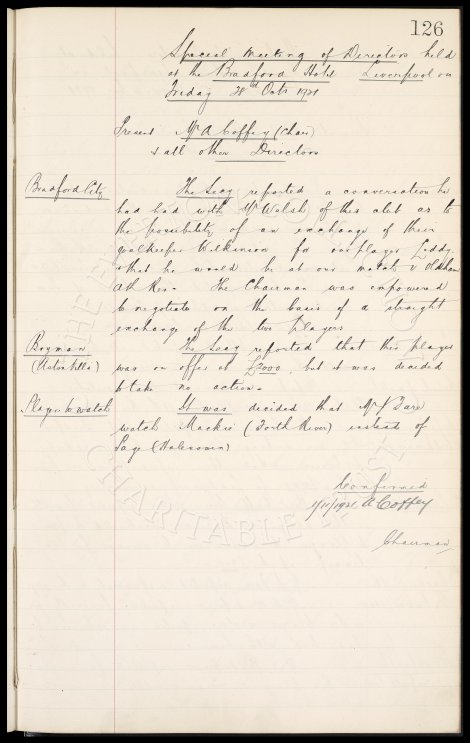 126
Special Meeting of Directors held
at the Bradford Hotel Liverpool on
Friday 28th Octr 1921
Present Mr A Coffey (Chair)
& all other Directors
Bradford City The Secy reported a conversation he
had had with Mr Walsh of this club as to
the possibility of an exchange of their
goalkeeper Wilkinson for our player Liddy
& that he would be at our match v Oldham
Ath Res. The Chairman was empowered
to negotiate on the basis of a straight
exchange of the two players
Boyman The Secy reported that this player
(Aston Villa) was on offer at £2000, but it was decided
to take no action.
Player to watch It was decided that Mr Dare
watch Mackie (Forth River) instead of
Sage (Halesowen)
Confirmed
1/11/1921 A Coffey
Chairman
CHARITABLE TRUST